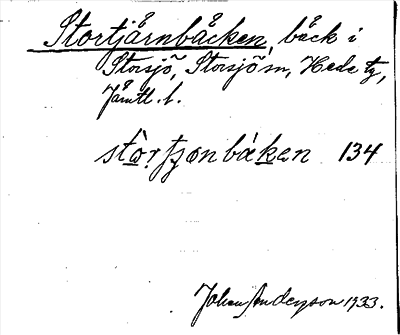 Stortjärnbäcken, bäck i
Storsjö, Storsjö sn, Hede tg,
Jämtl. l.
stòrtjɷnbäken 134
Johan Anderson 1933.